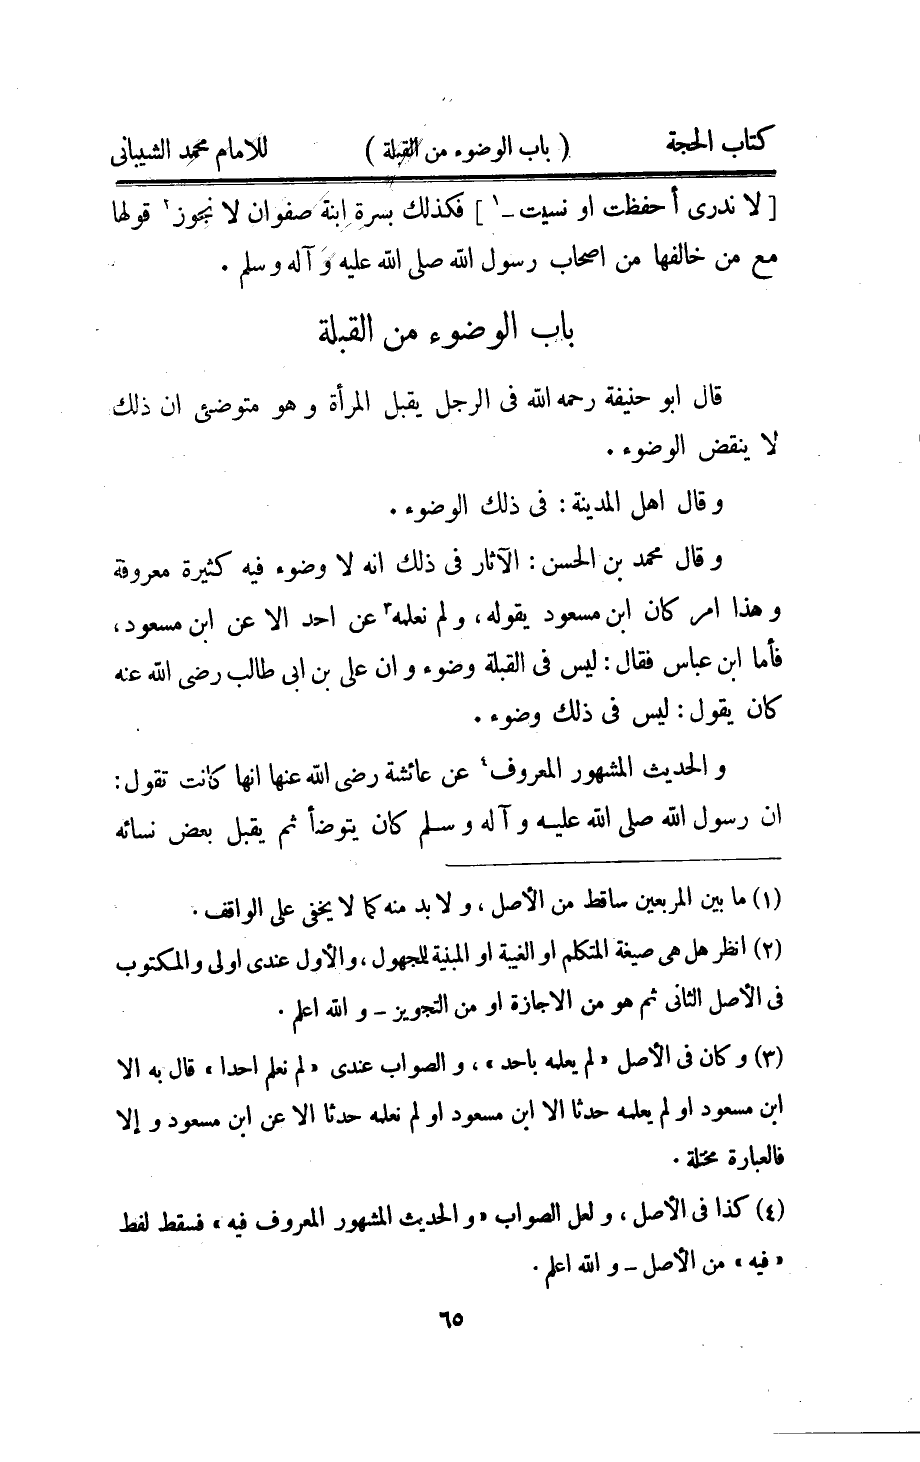 كتاب الحجة ( باب الوضوء من القبلة ) للامام محمد الشيبانى
[ لا ندرى أ حفظت او نسيت ــ١ ] فكذلك بسرة ابنة صفوان لا نجوز٢ قولها
مع من خالفها من اصحاب رسول الله صلى الله عليه و آله و سلم .
باب الوضوء من القبلة
قال ابو حنيفة رحمه الله فى الرجل يقبل المرأة و هو متوضئ ان ذلك
لا ينقض الوضوء .
و قال اهل المدينة : فى ذلك الوضوء .
و قال محمد بن الحسن : الآثار فى ذلك انه لا وضوء فيه كثيرة معروفة
و هذا امر كان ابن مسعود يقوله ، و لم نعلمه٣ عن احد الا عن ابن مسعود ،
فأما ابن عباس فقال : ليس فى القبلة وضوء و ان على بن ابى طالب رضى الله عنه
كان يقول : ليس فى ذلك وضوء .
و الحديث المشهور المعروف٤ عن عائشة رضى الله عنها انها كانت تقول :
ان رسول الله صلى الله عليــه و آ له و ســلم كان يتوضأ ثم يقبل بعض نسائه
(١) ما بين المربعين ساقط من الأصل ، و لا بد منه كما لا يخفى على الواقف .
(٢) انظر هل هى صيغة المتكلم او الغيبة او المبنية للجهول ، والأول عندى اولى والمكتوب
فى الأصل الثانى ثم هو من الاجازة او من التجويز ــ و الله اعلم .
(٣) و كان فى الأصل « لم يعلمه باحد » ، و الصواب عندى « لم نعلم احدا » قال به الا
ابن مسعود او لم يعلمه حدثا الا ابن مسعود او لم نعلمه حدثا الا عن ابن مسعود و إلا
فالعبارة مختلة .
(٤) كذا فى الأصل ، و لعل الصواب « و الحديث المشهور المعروف فيه » فسقط لفظ
« فيه » من الأصل ــ و الله اعلم .
٦٥